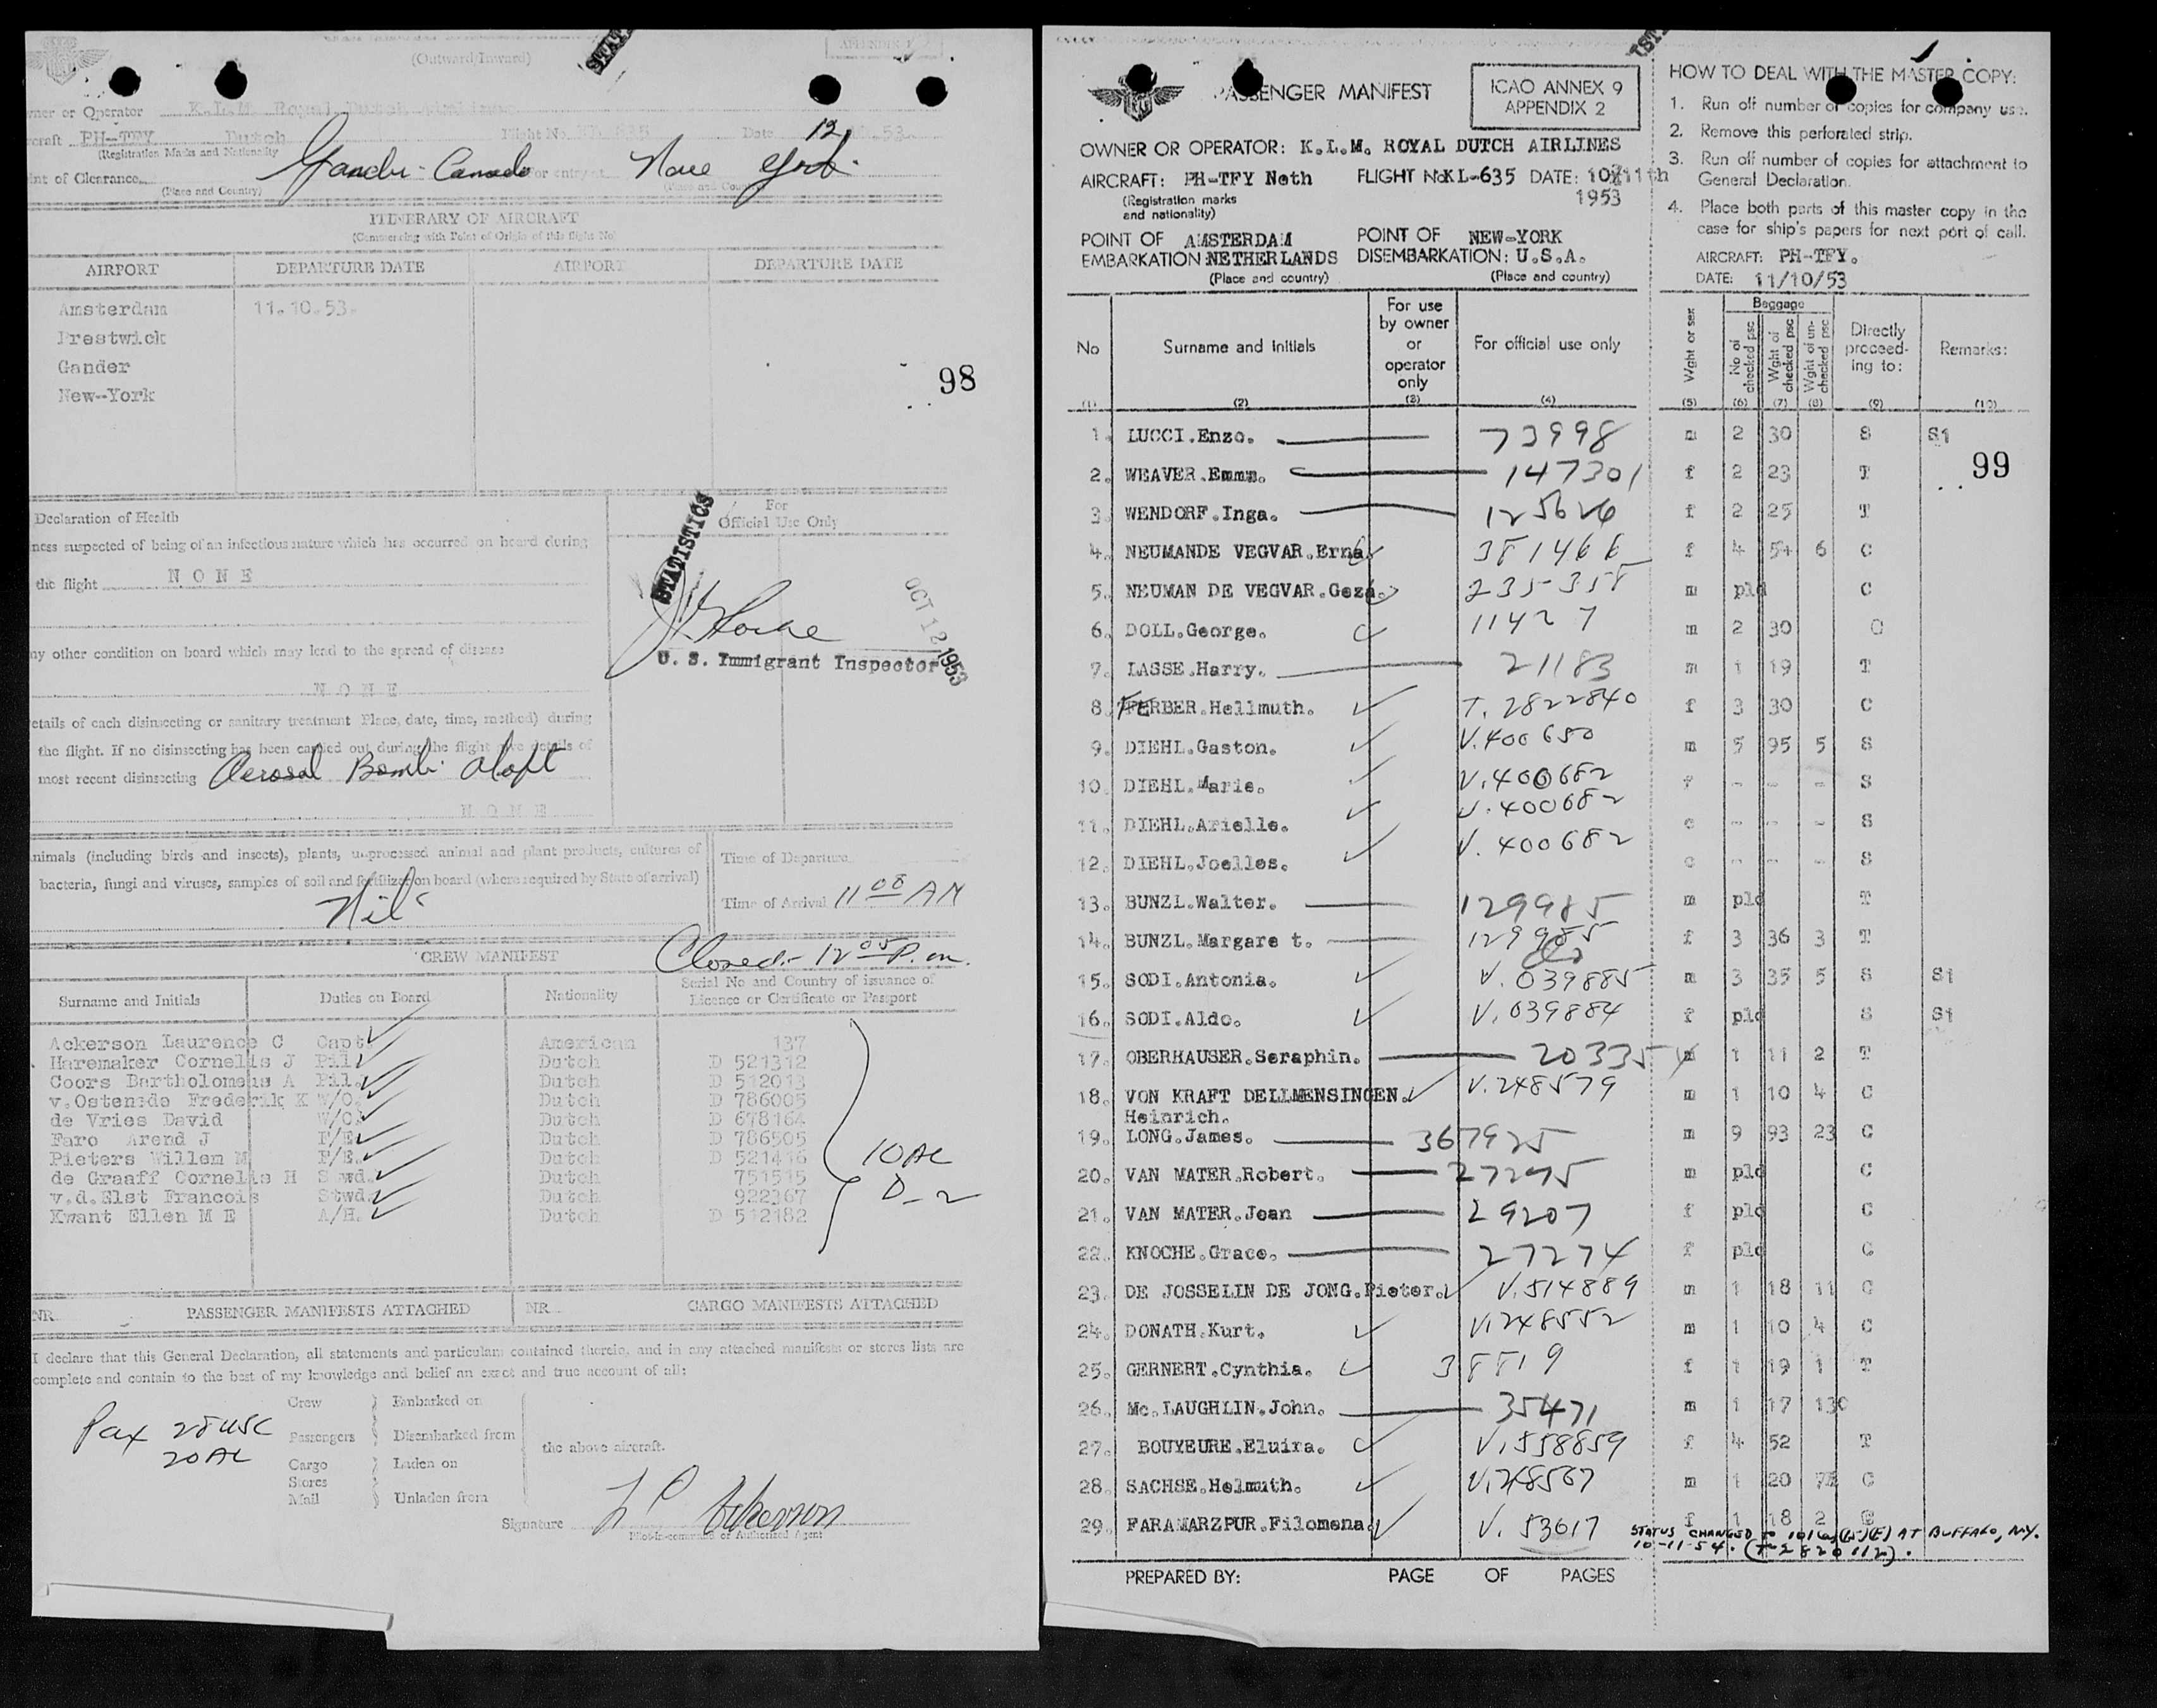 (Outward/Inward)
APPENDIX 1
Owner or Operator K.L.M. Royal Dutch Airlines
craft PH-TFY Dutch Flight No. KL 635 Date 12 53.
(Registration Marks and Nationality
int of Clearance Gander - Canada For entry at New York
(Place and Country) (Place and Country)
ITINERARY OF AIRCRAFT
(Commencing with Point of Origin of this flight No)
AIRPORT DEPARTURE DATE AIRPORT DEPARTURE DATE
Amsterdam 11.10.53.
Prestwick
Gander
New-York
98
Declaration of Health
For
Official Use Only
ness suspected of being of an infectious nature which has occurred on board during
the flight NONE
STATISTICS
OCT 12 1953
U. S. Immigrant Inspector
ny other condition on board which may lead to the spread of disease
NONE
etails of each disinsecting or sanitary treatment Place, date, time, method) during
the flight. If no disinsecting has been carried out during the flight give details of
most recent disinsecting Aerosol Bomb aloft
NONE
nimals (including birds and insects), plants, unprocessed animal and plant products, cultures of
bacteria, fungi and viruses, samples of soil and fertilizer on board (where required by State of arrival)
Nil
Time of Departure
Time of Arrival 11 08 AM
Closed - 12 05 P.m.
CREW MANIFEST
Surname and Initials Duties on Board Nationality Serial No and Country of issuance of
Licence or Certificate or Passport
Ackerson Laurence C Capt. American 137
Haremaker Cornelis J Pil. Dutch D 521312
Coors Bartholomeus A Pil. Dutch D 512013
v.Ostende Frederik K W/O. Dutch D 786005
de Vries David W/O. Dutch D 678164
Faro Arend J F/E. Dutch D 786505
Pieters Willem M F/E. Dutch D 521416
de Graaff Cornelis H Stwd. Dutch 751515
v.d.Elst Francois Stwd. Dutch 922367
Kwant Ellen M E A/H. Dutch D 512182
10 AL
D-2
NR PASSENGER MANIFESTS ATTACHED NR CARGO MANIFESTS ATTACHED
I declare that this General Declaration, all statements and particulars contained therein, and in any attached manifests or stores lists are
complete and contain to the best of my knowledge and belief an exact and true account of all:
Pax 28 USC
20 AL
Crew Embarked on
Passengers Disembarked from
the above aircraft.
Cargo Laden on
Stores
Mail Unladen from
Signature L C Ackerson
Pilot-in-command or Authorized Agent
PASSENGER MANIFEST
ICAO ANNEX 9
APPENDIX 2
OWNER OR OPERATOR: K.L.M. ROYAL DUTCH AIRLINES
AIRCRAFT: PH-TFY Neth FLIGHT No KL-635 DATE: 11th
(Registration marks
and nationality)
1953
POINT OF AMSTERDAM POINT OF NEW-YORK
EMBARKATION: NETHERLANDS DISEMBARKATION: U.S.A.
(Place and country) (Place and country)
HOW TO DEAL WITH THE MASTER COPY:
1. Run off number of copies for company use.
2. Remove this perforated strip.
3. Run off number of copies for attachment to
General Declaration.
4. Place both parts of this master copy in the
case for ship's papers for next port of call.
AIRCRAFT: PH-TFY.
DATE: 11/10/53
No Surname and Initials For use by owner or operator only For official use only Wght or sex Baggage No of checked psc Wght of checked psc Wght of un-checked psc Directly proceed-ing to: Remarks:
(1) (2) (3) (4) (5) (6) (7) (8) (9) (10)
99
1. LUCCI.Enzo. 73998 m 2 30 S Si
2. WEAVER.Emma. 147301 f 2 23 T
3. WENDORF.Inga. 125626 f 2 25 T
4. NEUMANDE VEGVAR.Erna 381466 f 4 54 6 C
5. NEUMAN DE VEGVAR.Geza. 235358 m pld C
6. DOLL.George. 11427 m 2 30 C
7. LASSE.Harry. 21183 m 1 19 T
8. FERBER.Hellmuth. T. 2822840 f 3 30 C
9. DIEHL.Gaston. V.400680 m 5 95 5 S
10. DIEHL.Marie. V.400682 f - - - S
11. DIEHL.Arielle. V.400682 c - - - S
12. DIEHL.Joelles. V. 400682 c - - - S
13. BUNZL.Walter. 129985 m pld T
14. BUNZL.Margare t. 129985 f 3 36 3 T
15. SODI.Antonia. V. 039885 m 3 35 5 S Si
16. SODI.Aldo. V. 039884 f pld S Si
17. OBERHAUSER.Seraphin. 20335 m 1 11 2 T
18. VON KRAFT DELLMENSINGEN. V.248579 m 1 10 4 C
Heinrich.
19. LONG.James. 367925 m 9 93 23 C
20. VAN MATER.Robert. 27275 m pld C
21. VAN MATER.Joan 29207 f pld C
22. KNOCHE.Grace. 27274 f pld C
23. DE JOSSELIN DE JONG.Pieter. V.514889 m 1 18 11 C
24. DONATH.Kurt. V.248552 m 1 10 4 C
25. GERNERT.Cynthia. 38819 f 1 19 1 T
26. Mc.LAUGHLIN.John. 35471 m 1 17 13 C
27. BOUYEURE.Eluira. V.558859 f 4 52 T
28. SACHSE.Helmuth. V.248567 m 1 20 C
29. FARAMARZPUR.Filomena V. 53617 f 1 18 2
STATUS CHANGED TO 101(a)(15)(E) AT BUFFALO, N.Y.
10-11-54. (T-2820112).
PREPARED BY: PAGE OF PAGES